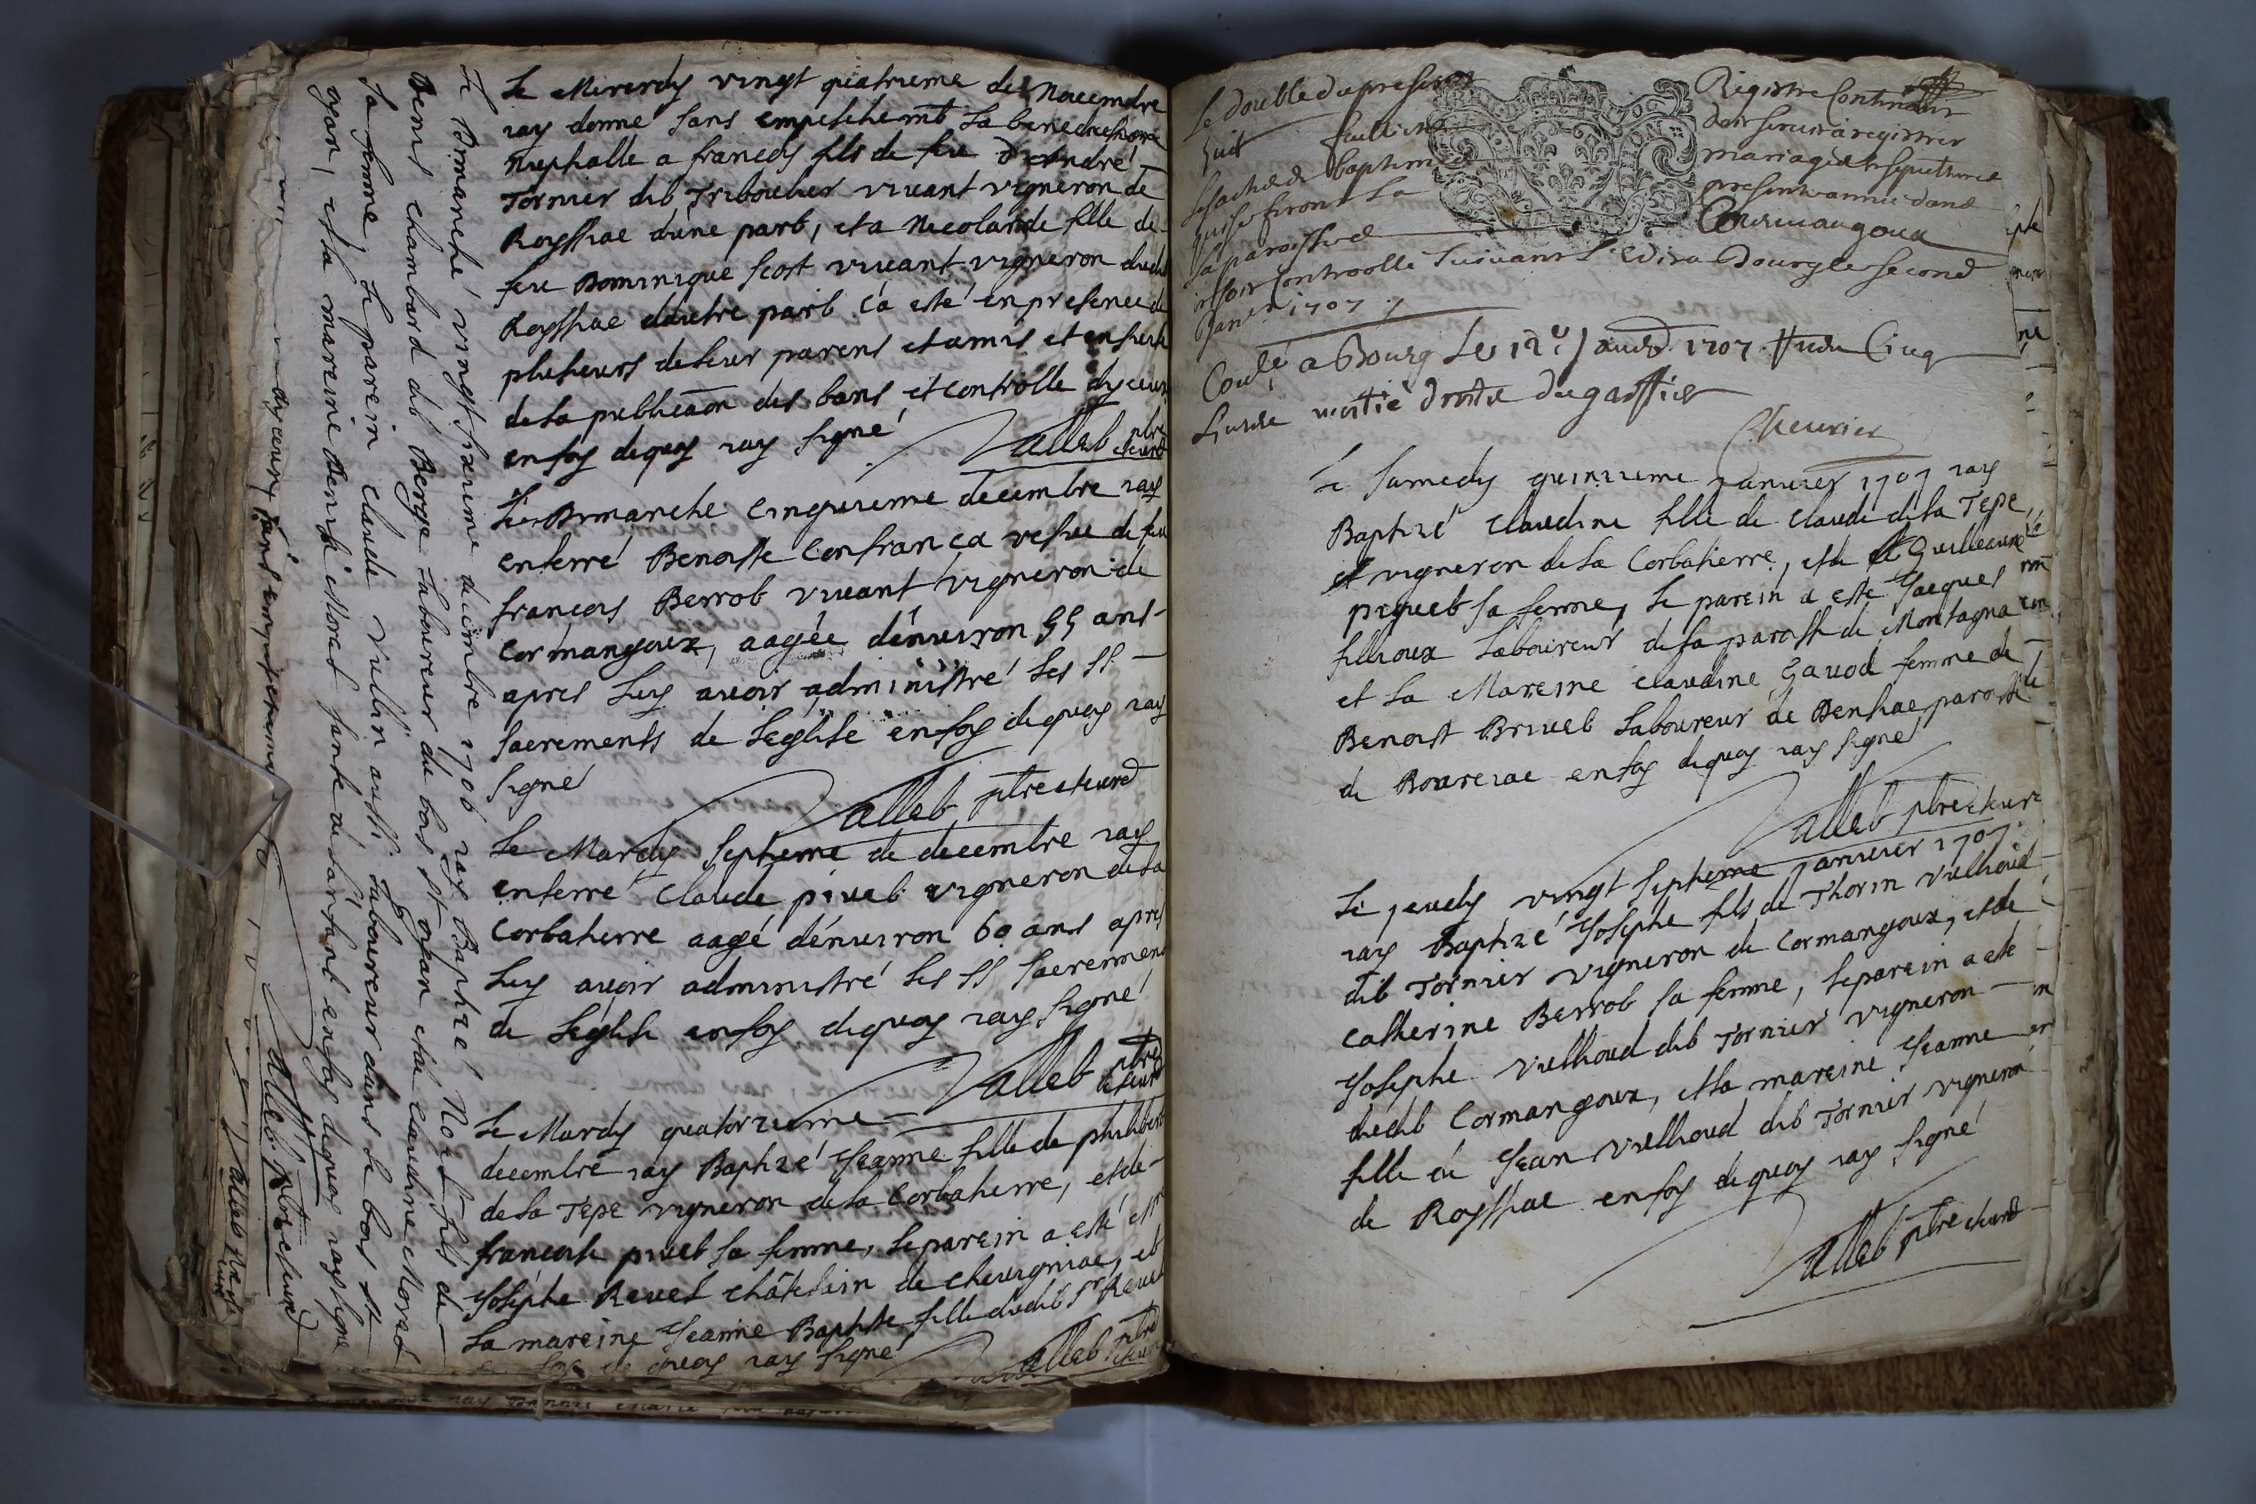 Le Mecredy vingt quatrieme de Novembre
iay donne sans empeschemt la benediction
nuptialle a francois fils de feu André
Tornier dit Triboulier vivant vigneron de
Royssiat d'une part, et a Nicolarde fille de
feu Dominique scot vivant vigneron dudit
Royssiat d'autre part ça esté en presence de
plusieurs de leur parens et amis et ensuite
de la publicaõn des bans et controlle diceux
en foy de quoy iay signé
Vallet ptre et curé
Le Dimanche cinquieme decembre iay
enterré Benoiste Confranca vefve de feu
francois Berrot vivant vigneron de
Cormangoux, aagée dénuiron 55 ans
apres luy avoir administré les SS
sacrements de leglise en foy de quoy iay
signé
Vallet ptre et curé
Le Mardy septieme de decembre iay
enterré Claude pivet vigneron de la
Corbatiere aagé dénuiron 60 ans apres
luy avoir administré les SS sacrement
de leglise en foy de quoy iay signé
Vallet ptre et curé
Le Mardy quatorzieme
decembre iay Baptizé Jeanne fille de philibert
de la Tepe vigneron de la Corbatiere, et de
francoise pivet sa femme, le parein a esté
Josephe Revel châtelain de chevigniac, et
la mareine Jeanne Baptiste fille dudit Sr Revel
en foy de quoy iay signé
Vallet ptre et curé
Le Dimanche vingt sixieme decembre 1706 iay Baptizé Noel fils de
Denis chambard dit Berger laboureur du bois st oyan et de claudine Morel
sa femme, le parein claude Vullin aussi laboureur dans le bois st
oyan, et la mareine Denise Morel tante de lenfant en foy de quoy iay signé
Vallet ptre et curé
Vallet ptre et curé
Le double du present
Registre Contenant
huit feuilliets
doit servir a registrer
les actes de baptimes
mariages et sepultures
qui se feront La
presente annee dans
la paroisse de
Courmangoux
et soit controollé suivant L'Edit a Bourg le second
Janer 1707
Coulé a Bourg Le 12e Janvier 1707
Livres moitié droits du greffier
Chevrier
Le samedy quinzieme janvier 1707 iay
Baptizé claudine fille de claude de la Tepe,
vigneron de la Corbatierre, et de Guilleaume
piquet sa femme, le parein a esté Jacques
fillioux laboureur de la paroisse de Montagna
et la Mareine claudine Gavod femme de
Benoist Brivet laboureur de Densiae paroisse
de Bourciae en foy de quoy iay signé
Vallet ptre et curé
Le jeudy vingt septieme janvier 1707
iay Baptizé Josephe fils de Thorin Vulliod
dit Tornier vigneron de Cormangoux, et de
Catherine Berrot sa femme, le parein a esté
Josephe Vulliod dit Tornier vigneron
dudit Cormangoux, et la mareine Jeanne
fille de Jean Vulliod dit Tornier vigneron
de Royssiae en foy de quoy iay signé
Vallet ptre et curé